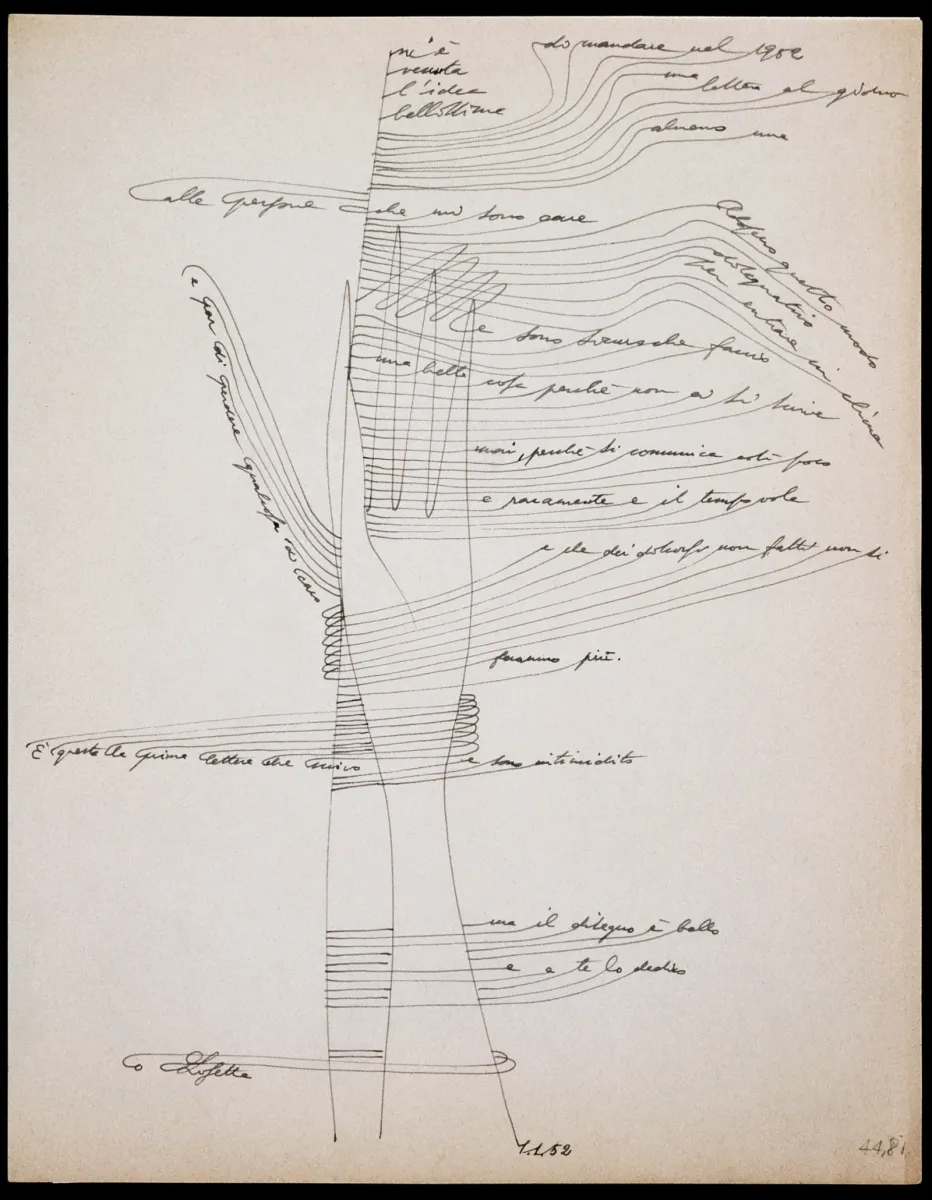 m'è
venuta
l'idea
bellissima
di mandare nel 1952
una lettera al giorno
almeno una
alle persone che mi sono care
Adopero questo modo
disegnativo
per entrare in clima
e sono sicuro che faccio
una bella cosa perchè non ci si scrive
mai, perchè si comunica così poco
e raramente e il tempo vola
e che dei discorsi non fatti non si
faranno più.
e poi di qualcosa
È questa la prima lettera che scrivo
e sono intimidito
ma il disegno è bello
e a te lo dedico
o Lisetta
1.1.52
44,81